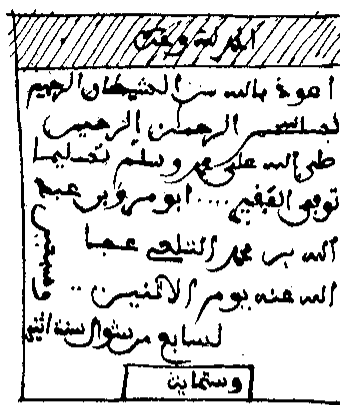 الحمد لله وحده
اعوذ بالله من الشيطان الرجيم
بسم الله الرحمن الرحيم
صلى الله على محمد وسلم تسليما
توفي الفقيه .... ابو مروان عبد
الله بن محمد عفا
الله عنه يوم الاثنين ..
لسابع من شوال سنة اثنين
وستماية